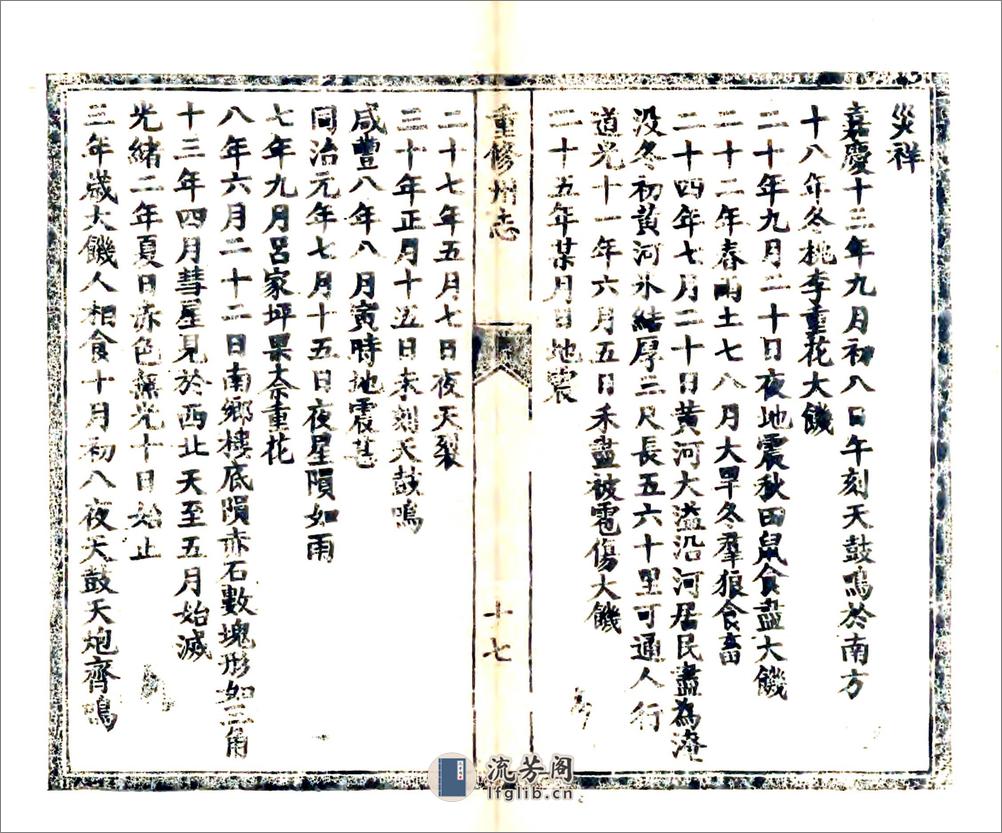 災祥
嘉慶十三年九月初八日午刻天鼓鳴於南方
十八年冬桃李重花大饑
二十年九月二十日夜地震秋田鼠食盡大饑
二十二年春雨土七八月大旱冬羣狼食畜
二十四年七月二十日黃河大溢沿河居民盡為淹
沒冬初黃河氷結厚三尺長五六十里可通人行
道光十一年六月五日禾盡被雹傷大饑
二十五年某月日地震
重修州志
十七
二十七年五月七日夜天裂
三十年正月十五日未刻天鼓鳴
咸豐八年八月寅時地震甚
同治元年七月十五日夜星隕如雨
七年九月呂家坪果柰重花
八年六月二十二日南鄉樓底隕赤石數塊形如三角
十三年四月彗星見於西北天至五月始滅
光緒二年夏日赤色無光十日始止
三年歲大饑人相食十月初八夜天鼓天炮齊鳴
流芳阁
lfglib.cn